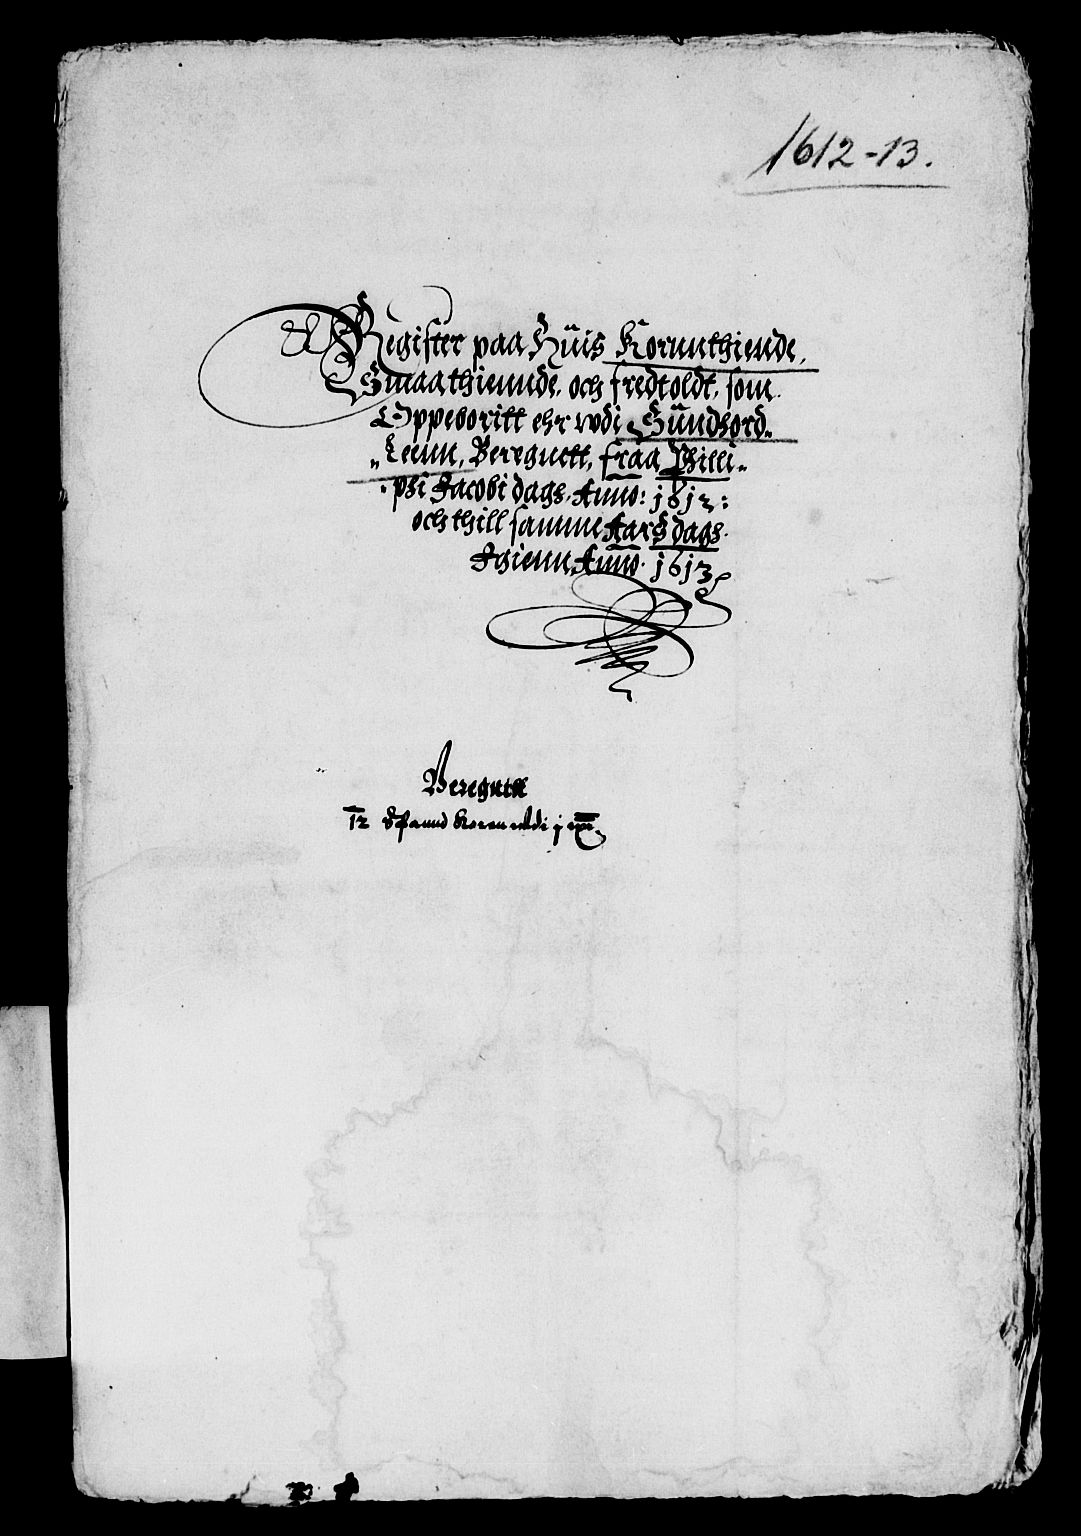 1612-13.
Register paa Huis Kornnthiende,
Smaathiennde, och fredtoldt, som
Oppeboritt ehr wdi Sündhord„
„Leenn, Beregnett, fraa Philli„
„phi Jacobi dags, Anno: 1612:
och thill samme Aars dags
Igienn, Anno 1613
Beregnett
12 Korn wdi j